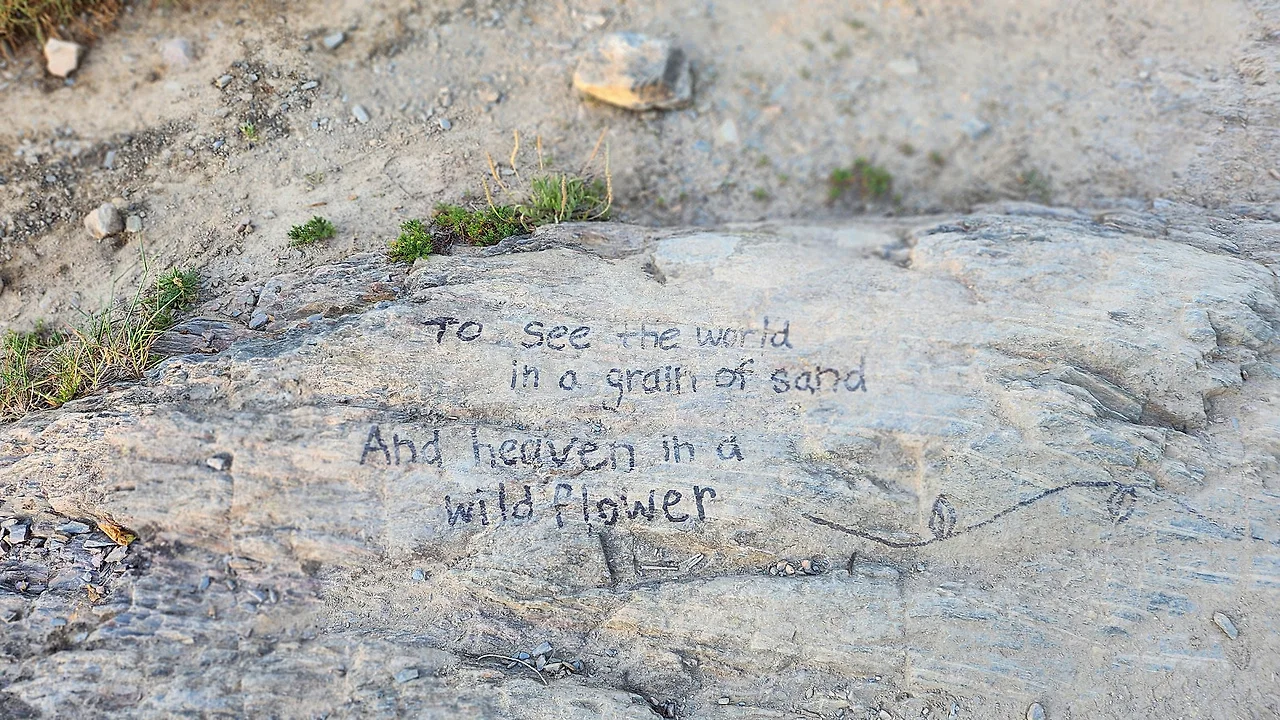 To See the world
in a grain of sand
And heaven in a
wild flower